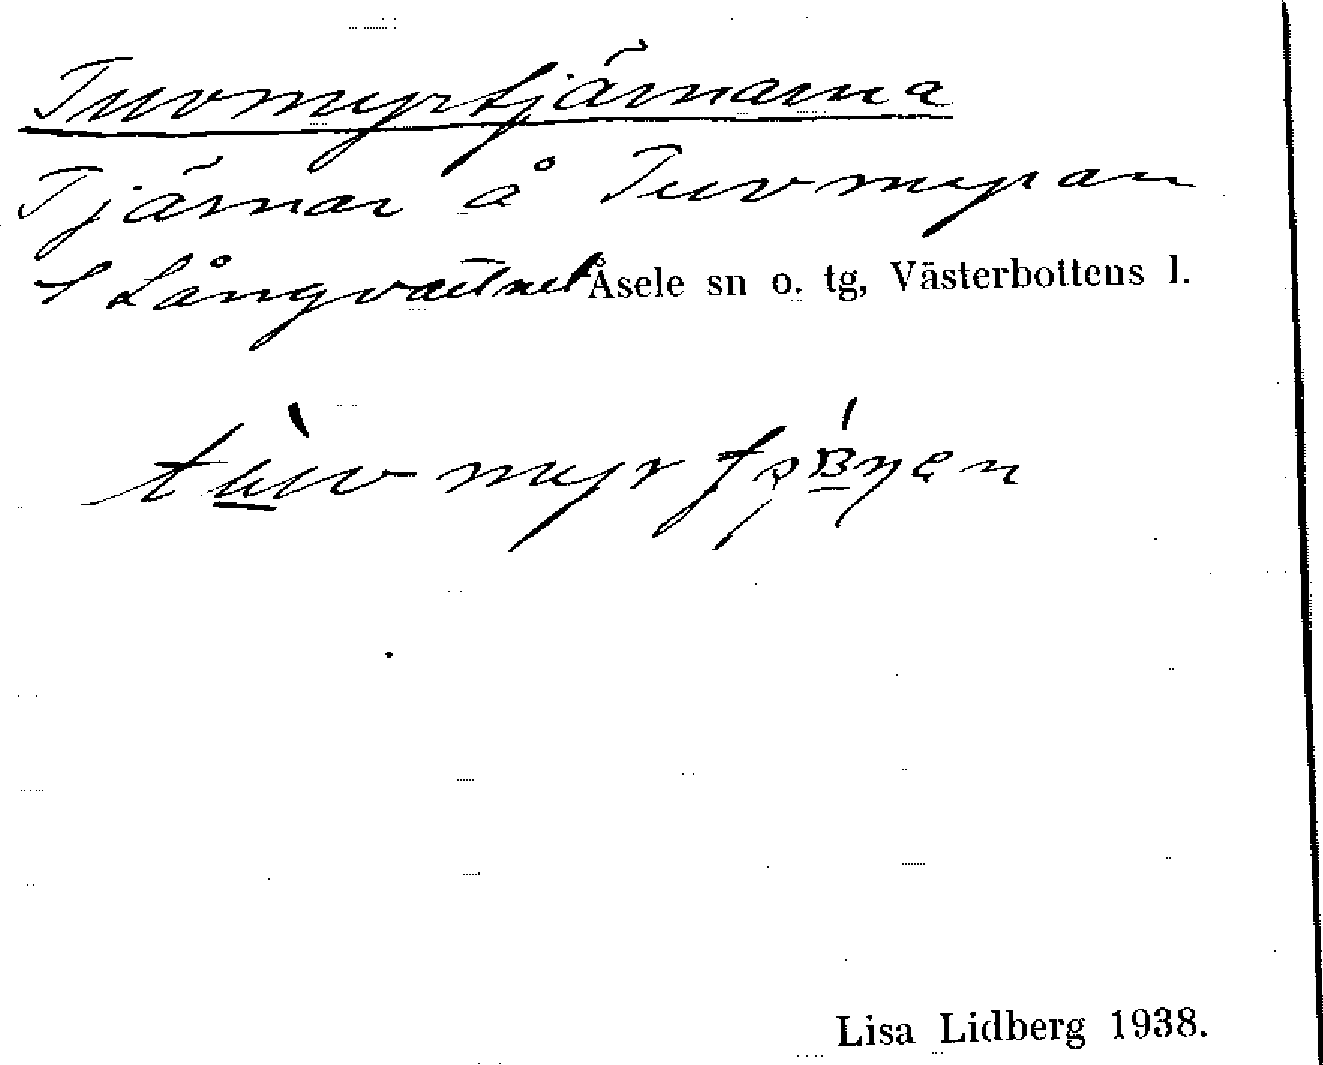 Tuvmyrtjärnarna
Tjärnar å Tuvmyran
S Långvattnet Åsele sn o. tg, Västerbottens l.
Lisa Lidberg 1938.